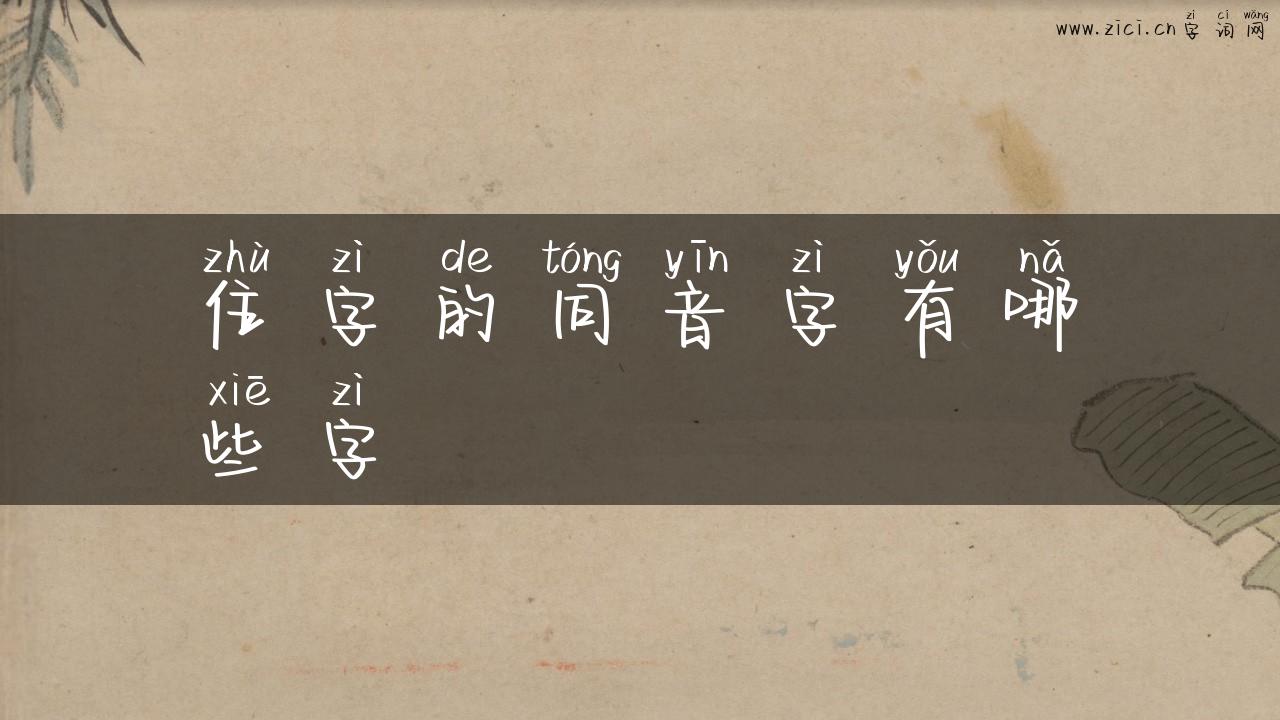 zì cí wǎng
www.zici.cn 字词网
zhù zì de tóng yīn zì yǒu nǎ
住字的同音字有哪
xiē zì
些字